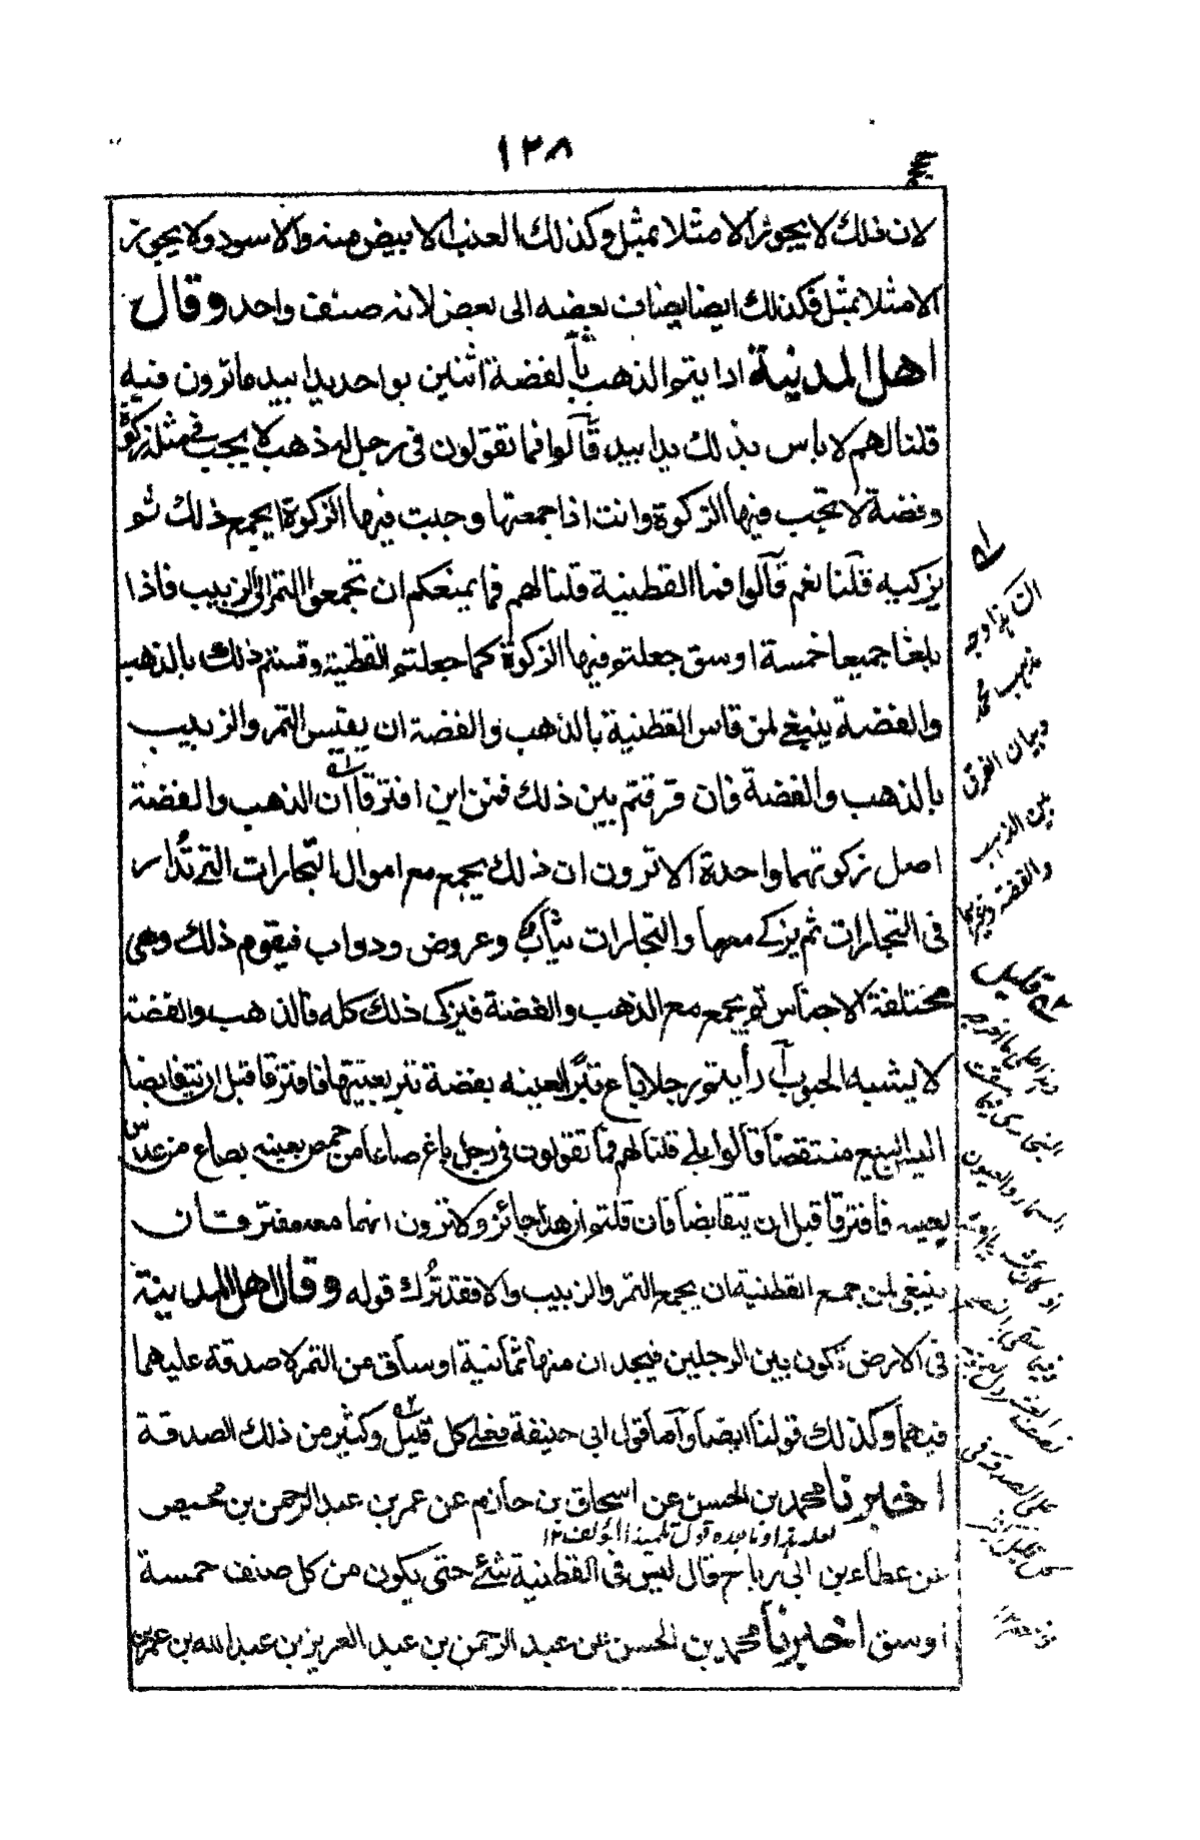 ١٢٨
لان ذلك لا يجوز الا مثلا بمثل وكذلك العنب الابيض منه والاسود ولا يجوز
الا مثلا بمثل فكذلك ايضا يضاف بعضه الى بعض لانه صنف واحد وقال
اهل المدينة اذا بيتم الذهب بالفضة اثنين بواحد يدا بيد ما ترون فيه
قلنا لهم لا باس بذلك يدا بيد قالوا فما تقولون فى رجل له ذهب لا يجب فى مثله زكوة
وفضة لا تجب فيها الزكوة وانت اذا جمعتها وجبت فيها الزكوة ايجمع ذلك ثم
يزكيه قلنا نعم قالوا فما القطنية قلنا لهم فما يمنعكم ان تجمعوا التمر الى الزبيب فاذا
بلغا جميعا خمسة اوسق جعلتم فيها الزكوة كما جعلتم القطنية وقستم ذلك بالذهب
والفضة ينبغى لمن قاس القطنية بالذهب والفضة ان يقيس التمر والزبيب
بالذهب والفضة فان فرقتم بين ذلك فمن اين افترقا ان الذهب والفضة
اصل زكوتهما واحدة الا ترون ان ذلك يجمع مع اموال التجارات التى تدار
فى التجارات ثم يزكے معها والتجارات ثياب وعروض ودواب فيقوم ذلك وهى
مختلفة الاجناس ثم يجمع مع الذهب والفضة فيزكى ذلك كله فالذهب والفضة
لا يشبه الحبوب أرأيتم رجلا باع تبرا بعينه بفضة تبر بعينها فافترقا قبل ان يتقابضا
اليس البيع منتقضا قالوا بلى قلنا لهم فما تقولون فى رجل باع صاعا من حمص بعينه بصاع من عدس
بعينه فافترقا قبل ان يتقابضا فان قلتم ان هذا جائز ولا ترون انهما معه مفترقان
ينبغى لمن جمع القطنية ان يجمع التمر والزبيب والا فقد ترك قوله وقال اهل المدينة
فى الارض تكون بين الرجلين فيجدان منها ثمانية اوساق من التمر لا صدقة عليهما
فيهما وكذلك قولنا ايضا واما قول ابى حنيفة فعلے كل قليل وكثير من ذلك الصدقة
اخبرنا محمد بن الحسن عن اسحاق بن حازم عن عمر بن عبد الرحمن بن محيص
لعله هذا وما بعده قول تلميذ المؤلف ١٢
عن عطاء بن ابى رباح قال ليس فى القطنية شئ حتى يكون من كل صنف خمسة
اوسق اخبرنا محمد بن الحسن عن عبد الرحمن بن عبد العزيز بن عبد الله بن عمر بن
ان هذا وجه
مذهب محمد
وبيان الفرق
بين الذهب
والفضة وغيرها
قليل